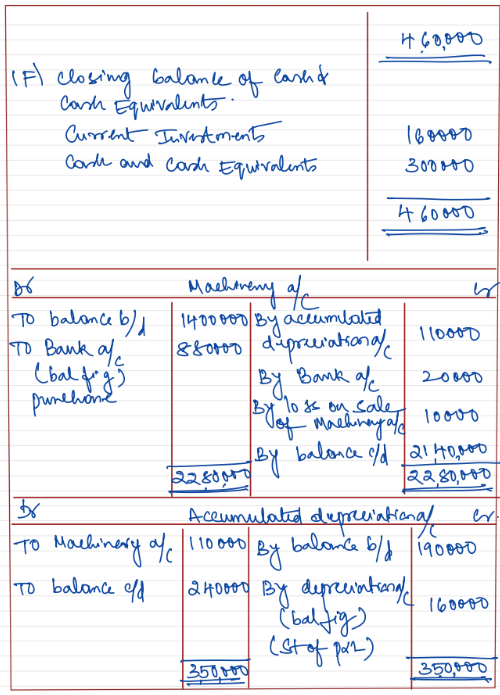 4,60,000
(F) Closing balance of Cash &
Cash Equivalents.
Current Investments 160000
Cash and Cash Equivalents 300000
460000
Dr Machinery a/c Cr
To balance b/d 1400000 By accumulated
depreciation a/c 110000
To Bank a/c 880000
(bal fig)
purchase
By Bank a/c 20000
By loss on sale
of Machinery a/c 10000
By balance c/d 2140,000
2280,000 22,80,000
Dr Accumulated depreciation a/c Cr
To Machinery a/c 110000 By balance b/d 190000
To balance c/d 240000 By depreciation a/c 160000
(bal fig)
(St of P&L)
350,000 350,000